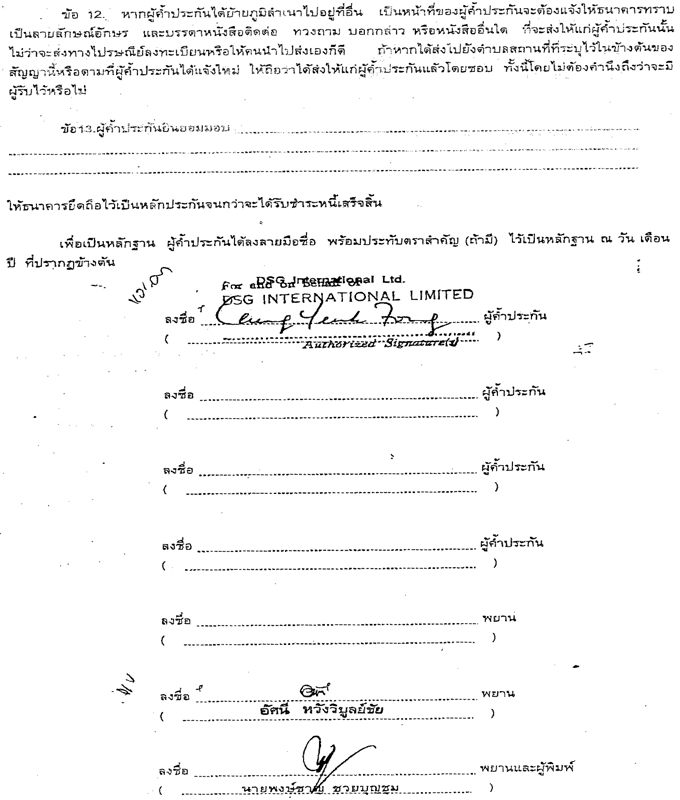 ข้อ 12. หากผู้ค้ำประกันได้ย้ายภูมิลำเนาไปอยู่ที่อื่น เป็นหน้าที่ของผู้ค้ำประกันจะต้องแจ้งให้ธนาคารทราบ
เป็นลายลักษณ์อักษร และบรรดาหนังสือติดต่อ ทวงถาม บอกกล่าว หรือหนังสืออื่นใด ที่จะส่งให้แก่ผู้ค้ำประกันนั้น
ไม่ว่าจะส่งทางไปรษณีย์ลงทะเบียนหรือให้คนนำไปส่งเองก็ดี ถ้าหากได้ส่งไปยังตำบลสถานที่ที่ระบุไว้ในข้างต้นของ
สัญญานี้หรือตามที่ผู้ค้ำประกันได้แจ้งใหม่ ให้ถือว่าได้ส่งให้แก่ผู้ค้ำประกันแล้วโดยชอบ ทั้งนี้โดยไม่ต้องคำนึงถึงว่าจะมี
ผู้รับไว้หรือไม่
ข้อ13.ผู้ค้ำประกันยินยอมมอบ
ให้ธนาคารยึดถือไว้เป็นหลักประกันจนกว่าจะได้รับชำระหนี้เสร็จสิ้น
เพื่อเป็นหลักฐาน ผู้ค้ำประกันได้ลงลายมือชื่อ พร้อมประทับตราสำคัญ (ถ้ามี) ไว้เป็นหลักฐาน ณ วัน เดือน
ปี ที่ปรากฏข้างต้น
DSG International Ltd.
For and on behalf of
DSG INTERNATIONAL LIMITED
ลงชื่อ ผู้ค้ำประกัน
( )
Authorized Signature(s)
ลงชื่อ ผู้ค้ำประกัน
( )
ลงชื่อ ผู้ค้ำประกัน
( )
ลงชื่อ ผู้ค้ำประกัน
( )
ลงชื่อ พยาน
( )
ลงชื่อ พยาน
( อัศนี หวังวิบูลย์ชัย )
ลงชื่อ พยานและผู้พิมพ์
( นายพงษ์ชาญ ชวยบุญชุม )